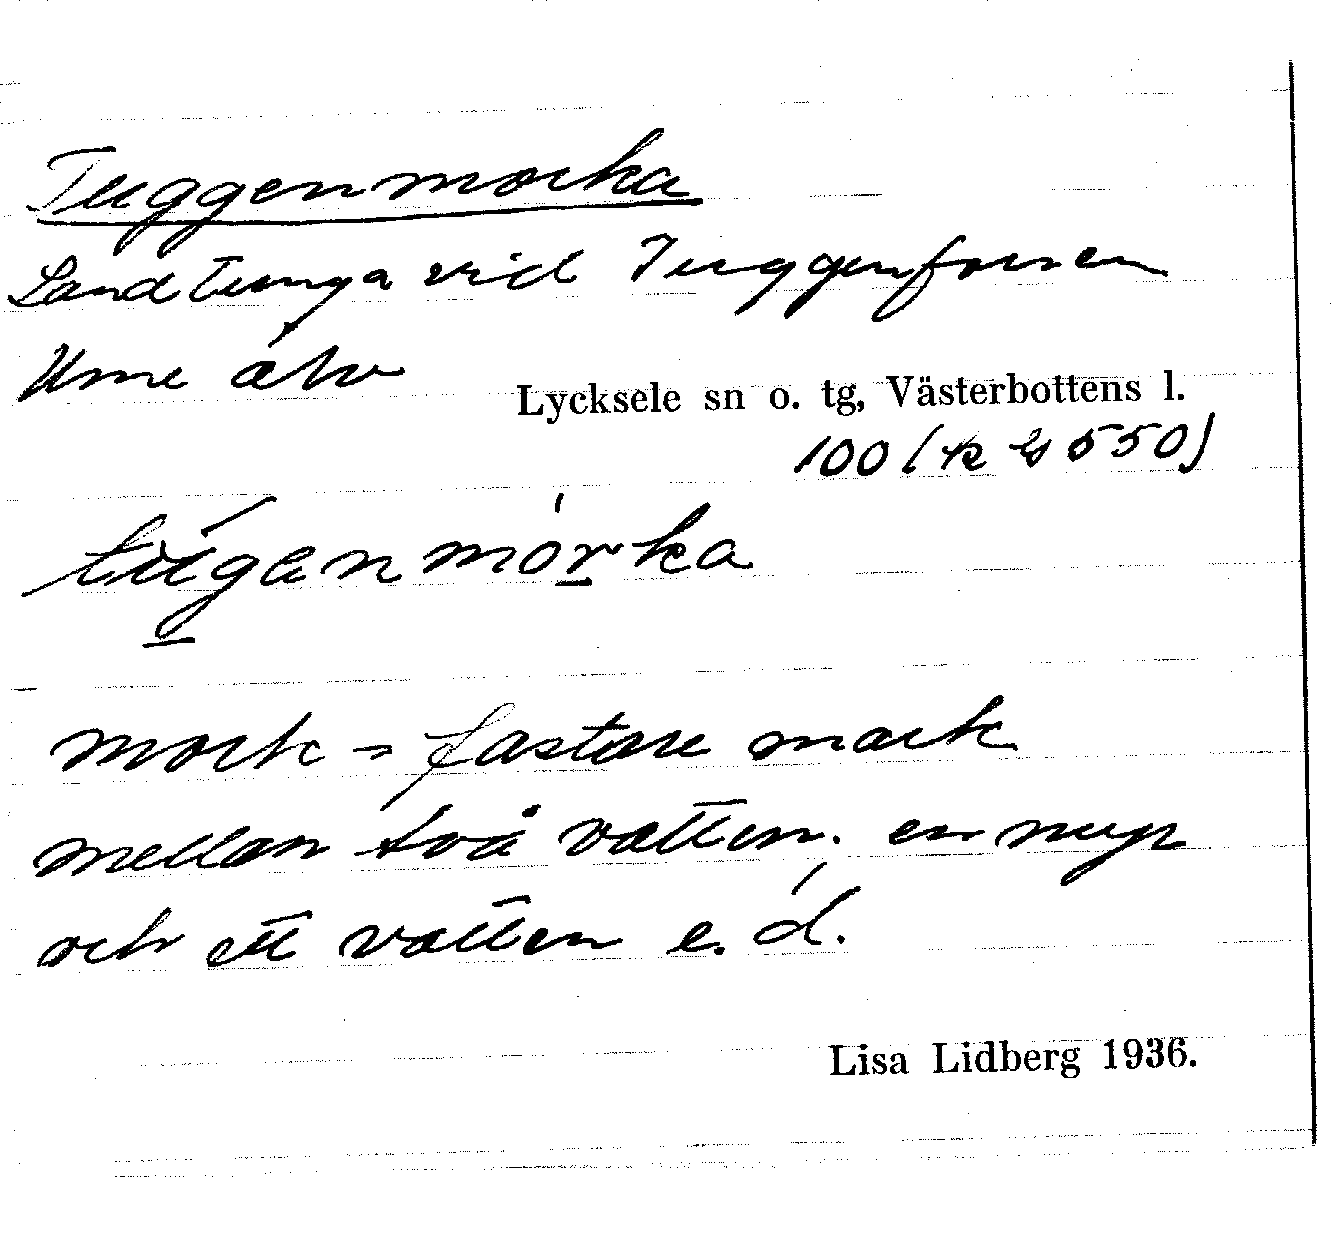 Tuggenmorka
Landtunga vid Tuggenforsen
Ume älv
Lycksele sn o. tg, Västerbottens l.
100 (k bl 550)
tùgenmórka
mork = fastare mark
mellan två vatten. en myr
och ett vatten e. d.
Lisa Lidberg 1936.